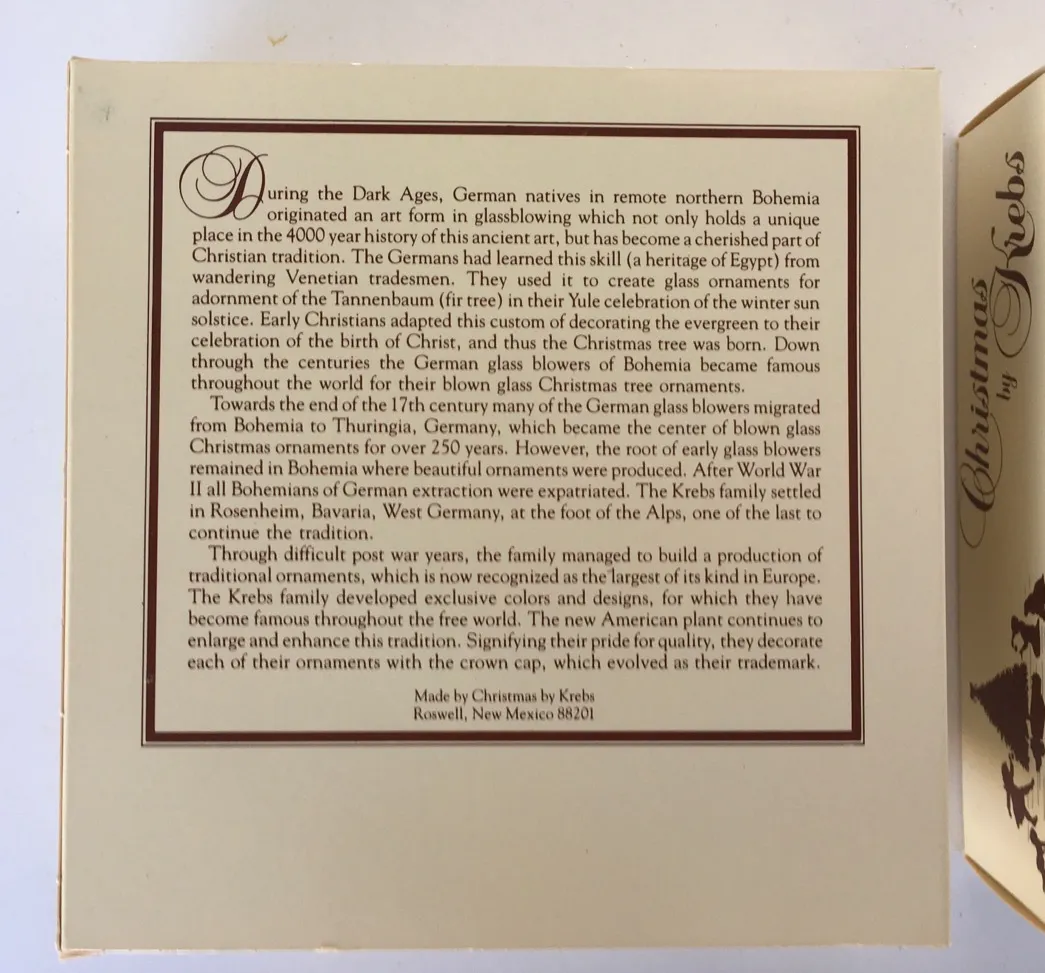 During the Dark Ages, German natives in remote northern Bohemia
originated an art form in glassblowing which not only holds a unique
place in the 4000 year history of this ancient art, but has become a cherished part of
Christian tradition. The Germans had learned this skill (a heritage of Egypt) from
wandering Venetian tradesmen. They used it to create glass ornaments for
adornment of the Tannenbaum (fir tree) in their Yule celebration of the winter sun
solstice. Early Christians adapted this custom of decorating the evergreen to their
celebration of the birth of Christ, and thus the Christmas tree was born. Down
through the centuries the German glass blowers of Bohemia became famous
throughout the world for their blown glass Christmas tree ornaments.
Towards the end of the 17th century many of the German glass blowers migrated
from Bohemia to Thuringia, Germany, which became the center of blown glass
Christmas ornaments for over 250 years. However, the root of early glass blowers
remained in Bohemia where beautiful ornaments were produced. After World War
II all Bohemians of German extraction were expatriated. The Krebs family settled
in Rosenheim, Bavaria, West Germany, at the foot of the Alps, one of the last to
continue the tradition.
Through difficult post war years, the family managed to build a production of
traditional ornaments, which is now recognized as the largest of its kind in Europe.
The Krebs family developed exclusive colors and designs, for which they have
become famous throughout the free world. The new American plant continues to
enlarge and enhance this tradition. Signifying their pride for quality, they decorate
each of their ornaments with the crown cap, which evolved as their trademark.
Made by Christmas by Krebs
Roswell, New Mexico 88201
Christmas
by
Krebs